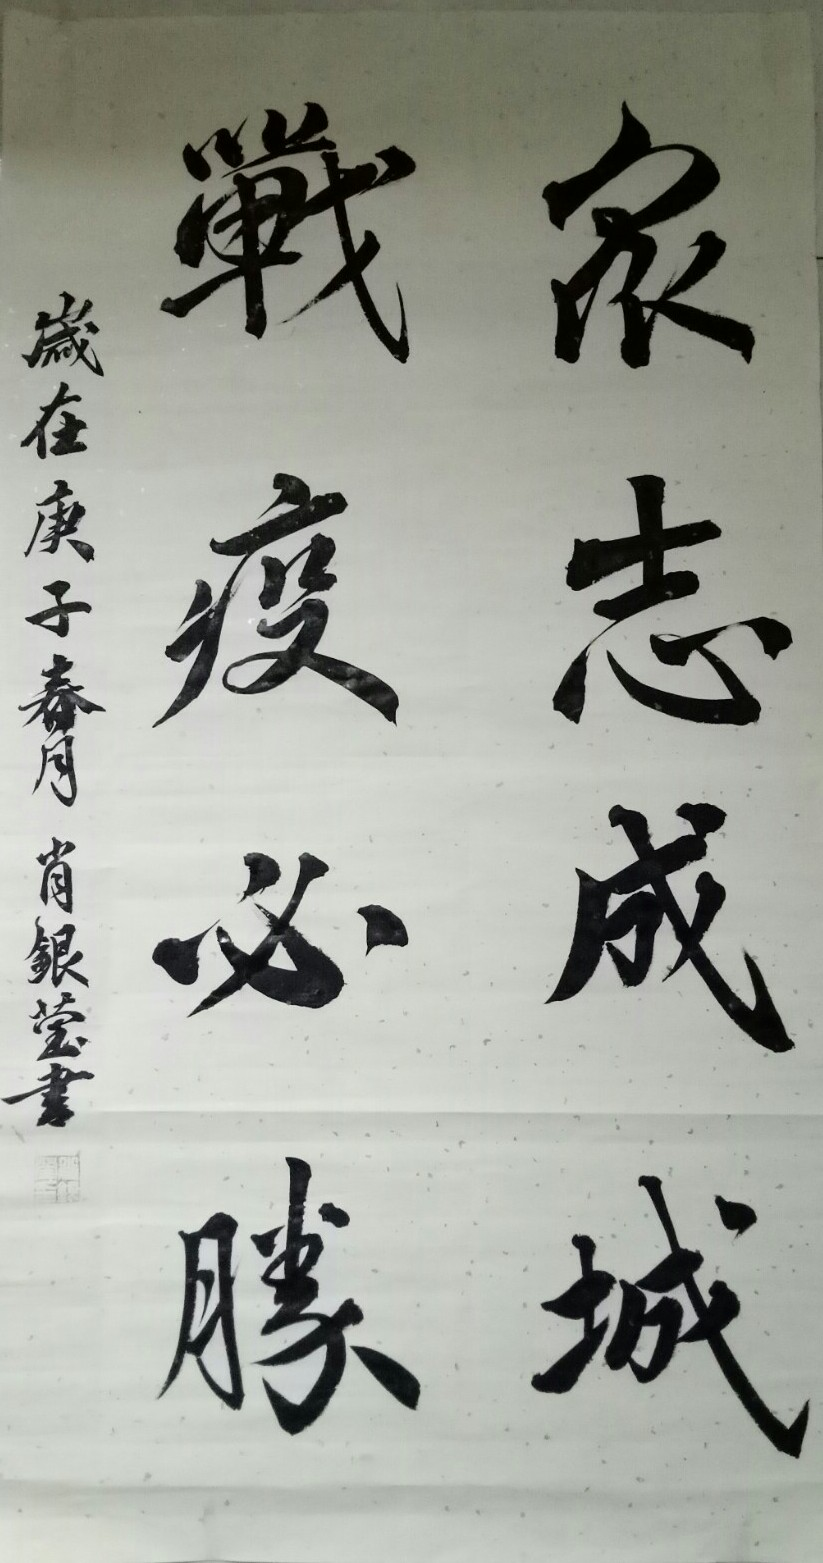 眾志成城
戰疫必勝
歲在庚子春月 肖銀瑩書